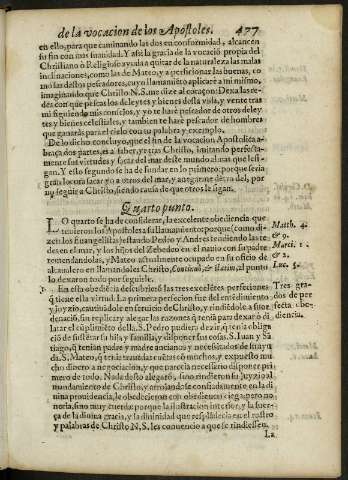 de la vocacion de los Apostoles. 477
en ello, para que caminando las dos en conformidad, alcancen
su fin con mas suauidad. Y assi la gracia de la vocació propia del
Christiano ò Religioso ayuda a quitar de la naturaleza las malas
inclinaciones, como las de Mateo, y a perficionar las buenas, co
mo las destos pescadores, cuyo llamamiento aplicarè a mi mismo,
imaginando que Christo N. S. me dize al coraçon: Dexa las re-
des con que pescas los deleytes y bienes desta vida, y vente tras
mi siguiendo mis consejos, y yo te harè pescador de otros deley
tes y bienes celestiales, y tambien te harè pescador de hombres
que ganaràs para el cielo con su palabra y exemplo.
De lo dicho concluyo, que el fin de la vocacion Apostolica a-
braça dos partes, es a saber, ya tras Christo, imitando perfecta-
mente sus virtudes y sacar del mar deste mundo almas que le si-
gan. Y esto segundo se ha de fundar en lo primero: porque seria
gran locura sacar yo a otros del mar, y anegarme dètro del, por
no seguir a Christo, siendo causa de que otros le sigan.
Quarto punto.
LO quarto se ha de considerar, la excelente obediencia que
tuuieron los Apostoles a su llamamiento: porque (como di-
zen los Euangelistas) estando Pedro y Andres tendiendo las re-
des en el mar, y los hijos del Zebedeo en el nauio con su padre
remendandolas, y Mateo actualmente ocupado en su oficio de
alcaualero en llamandoles Christo, Continuò, & statim, al punto
lo dexaron todo por seguirle.
Matth. 4.
& 9.
Marci. 1
& 2.
Luc. 5.
En esta obediécia descubrierò las tres excelétes perfecciones
q̃ tiene esta virtud. La primera perfeccion fue del entédimiento
y juyzio, cautiuandole en seruicio de Christo, y rindiédole a su or
denacion, sin replicar y alegar las razones q̃ tenià para dexarò di
latar el cùplimiéto della. S. Pedro pudiera dezir, q̃ tenia obliga
ciò de sustétar su hija y familia, y disponer sus cosas. S. Iuan y Sá
tiago, q̃ tenian padre y madre ancianos y necessitados de su ayu
da. S. Mateo, q̃ tenia trauadas cuétas cò muchos, y expuesto mu
cho dinero a negociacion, y que parecia necessario disponer pri
mero de todo. Nada desto alegarò, sino rindieron su juyzio al
mandamiento de Christo, y arrojandose confiadamente en la di
uina prouidencia, le obedecieron con obediencia ciega, pero no
necia, sino muy cuerda: porque la ilustracion interior, y la fuer-
ça de la diuina gracia, y la diuinidad que resplãdecia en el rostro
y palabras de Christo N. S. les conuencio a que se rindiessen.
Tres gra-
dos de per
fecta obe-
diencia.
La